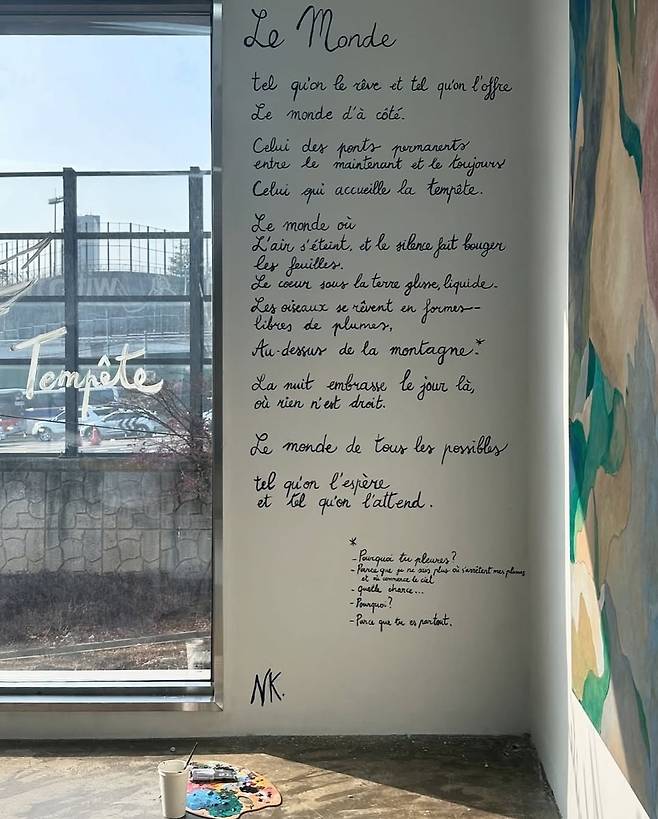 Le Monde
tel qu'on le rêve et tel qu'on l'offre
Le monde d'à côté.
Celui des ponts permanents
entre le maintenant et le toujours
Celui qui accueille la tempête.
Le monde où
L'air s'éteint, et le silence fait bouger
les feuilles.
Le coeur sous la terre glisse, liquide.
Les oiseaux se rêvent en formes-
libres de plumes,
Au-dessus de la montagne.*
La nuit embrasse le jour là,
où rien n'est droit.
Le monde de tous les possibles
tel qu'on l'espère
et tel qu'on l'attend.
*
- Pourquoi tu pleures?
- Parce que je ne sais plus où s'arrêtent mes plumes
et où commence le ciel
- Quelle chance...
- Pourquoi?
- Parce que tu es partout.
NK.
Tempête